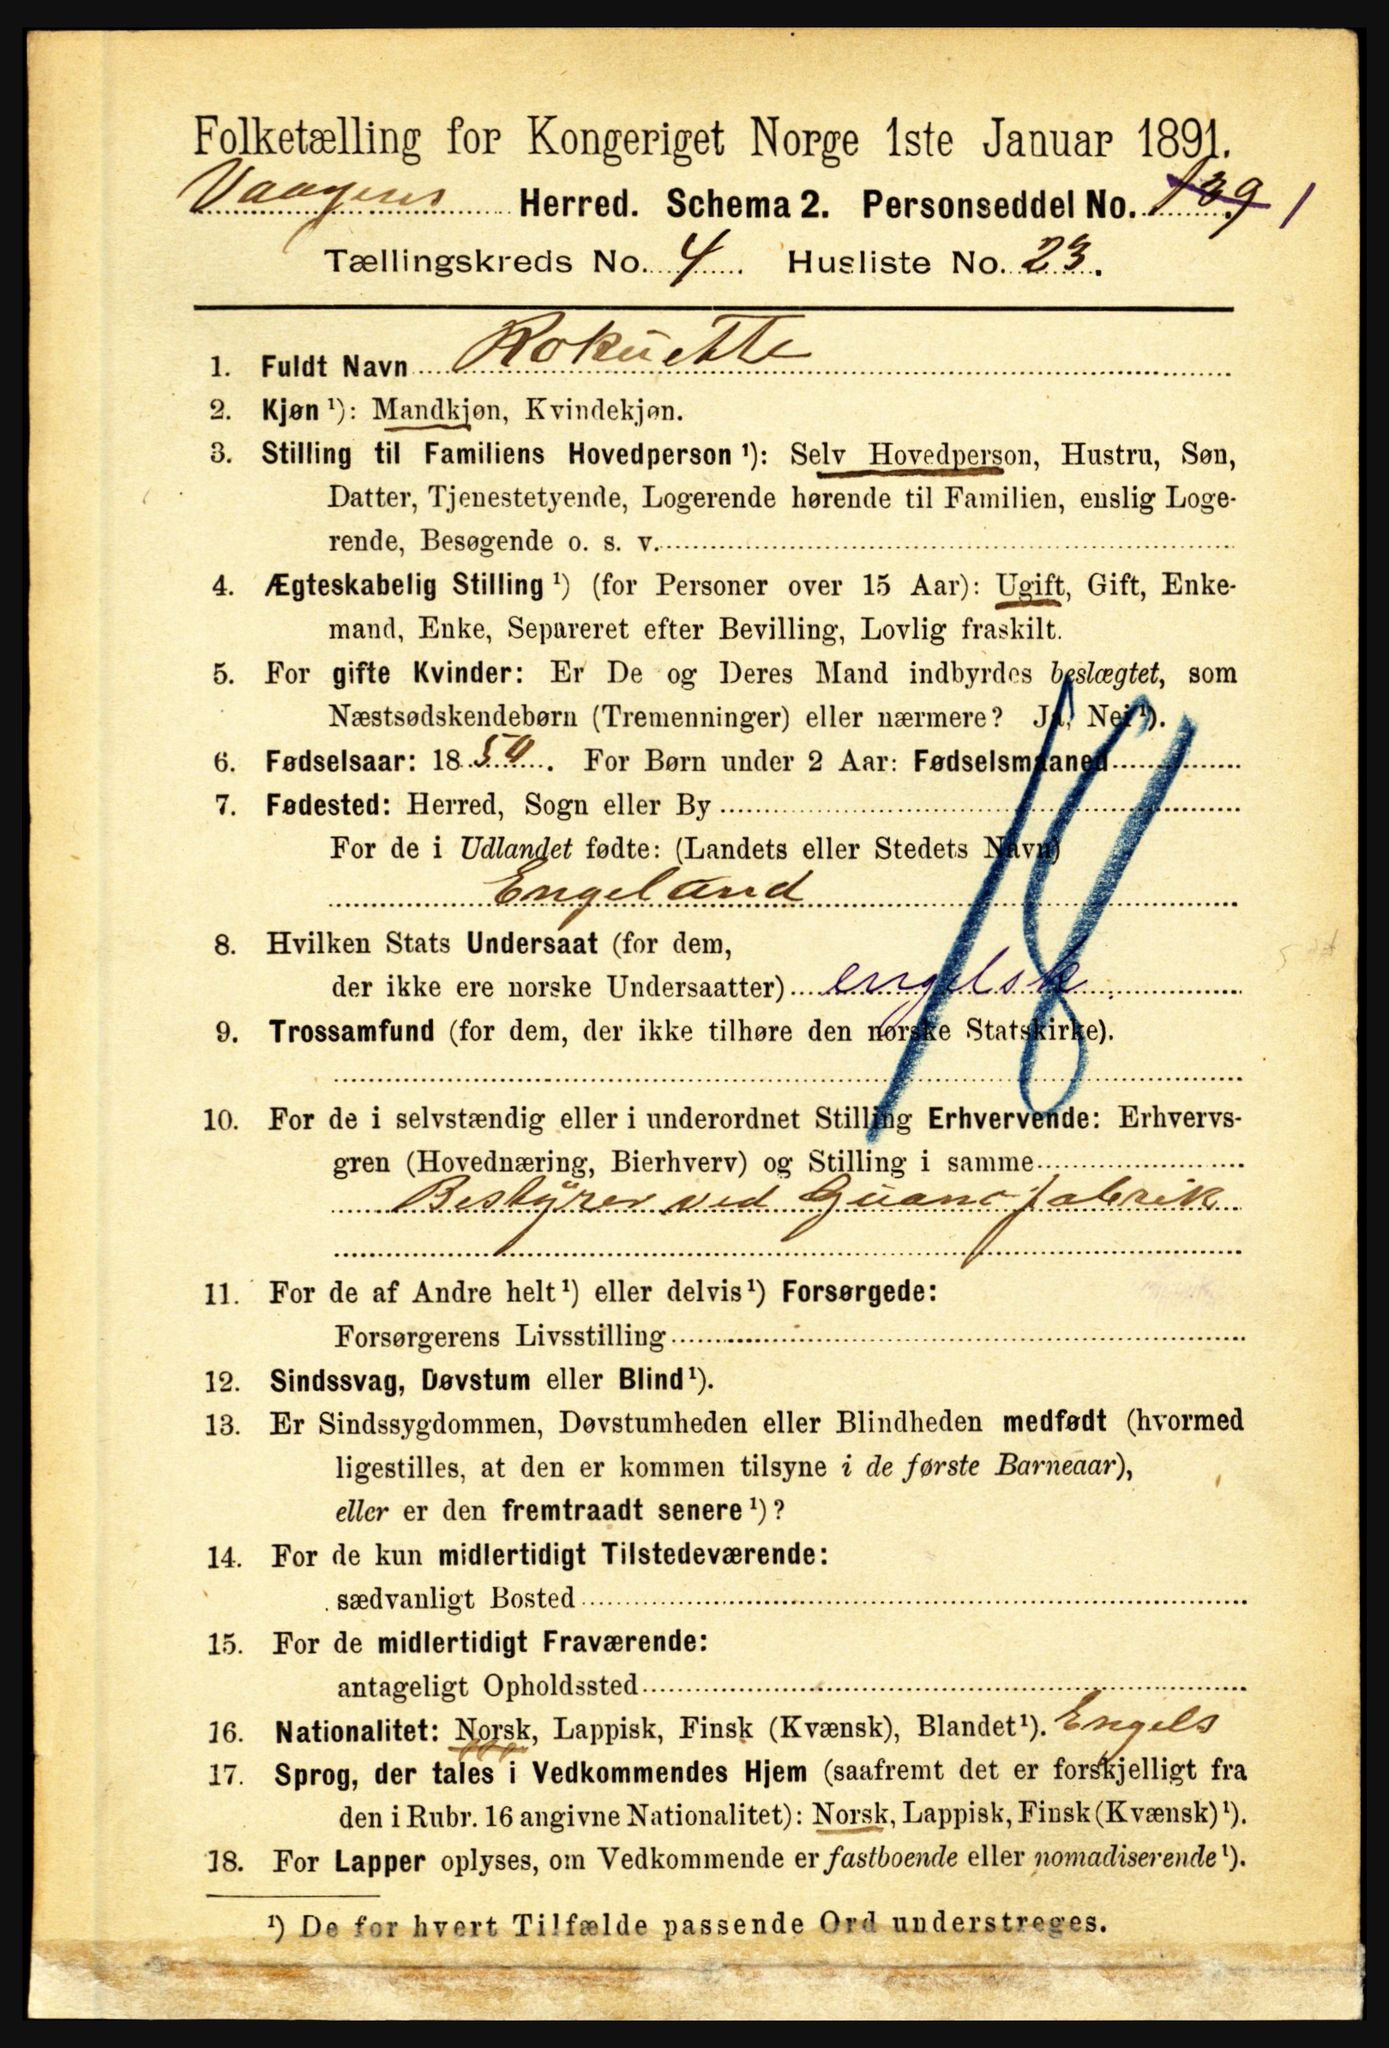 Folketælling for Kongeriget Norge 1ste Januar 1891.
Vaagens Herred. Schema 2. Personseddel No. 139 1
Tællingskreds No. 4 Husliste No. 23.
1. Fuldt Navn Rokuette
2. Kjøn ¹): Mandkjøn, Kvindekjøn.
3. Stilling til Familiens Hovedperson ¹): Selv Hovedperson, Hustru, Søn,
Datter, Tjenestetyende, Logerende hørende til Familien, enslig Loge-
rende, Besøgende o. s. v.
4. Ægteskabelig Stilling ¹) (for Personer over 15 Aar): Ugift, Gift, Enke-
mand, Enke, Separeret efter Bevilling, Lovlig fraskilt.
5. For gifte Kvinder: Er De og Deres Mand indbyrdes beslægtet, som
Næstsødskendebørn (Tremenninger) eller nærmere? Ja, Nei ¹).
6. Fødselsaar: 1850. For Børn under 2 Aar: Fødselsmaaned
7. Fødested: Herred, Sogn eller By
For de i Udlandet fødte: (Landets eller Stedets Navn)
Engeland
8. Hvilken Stats Undersaat (for dem,
der ikke ere norske Undersaatter) engelsk.
9. Trossamfund (for dem, der ikke tilhøre den norske Statskirke).
10. For de i selvstændig eller i underordnet Stilling Erhvervende: Erhvervs-
gren (Hovednæring, Bierhverv) og Stilling i samme
Bestyrer ved Guanofabrik
18
11. For de af Andre helt ¹) eller delvis ¹) Forsørgede:
Forsørgerens Livsstilling
12. Sindssvag, Døvstum eller Blind ¹).
13. Er Sindssygdommen, Døvstumheden eller Blindheden medfødt (hvormed
ligestilles, at den er kommen tilsyne i de første Barneaar),
eller er den fremtraadt senere ¹)?
14. For de kun midlertidigt Tilstedeværende:
sædvanligt Bosted
15. For de midlertidigt Fraværende:
antageligt Opholdssted
16. Nationalitet: Norsk, Lappisk, Finsk (Kvænsk), Blandet ¹). Engels
17. Sprog, der tales i Vedkommendes Hjem (saafremt det er forskjelligt fra
den i Rubr. 16 angivne Nationalitet): Norsk, Lappisk, Finsk (Kvænsk) ¹).
18. For Lapper oplyses, om Vedkommende er fastboende eller nomadiserende ¹).
¹) De for hvert Tilfælde passende Ord understreges.